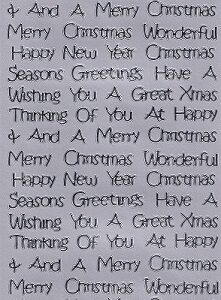 & And A Merry Christmas
Merry Christmas Wonderful
Happy New Year Christmas
Seasons Greetings Have A
Wishing You A Great Xmas
Thinking Of You At Happy
& And A Merry Christmas
Merry Christmas Wonderful
Happy New Year Christmas
Seasons Greetings Have A
Wishing You A Great Xmas
Thinking Of You At Happy
& And A Merry Christmas
Merry Christmas Wonderful